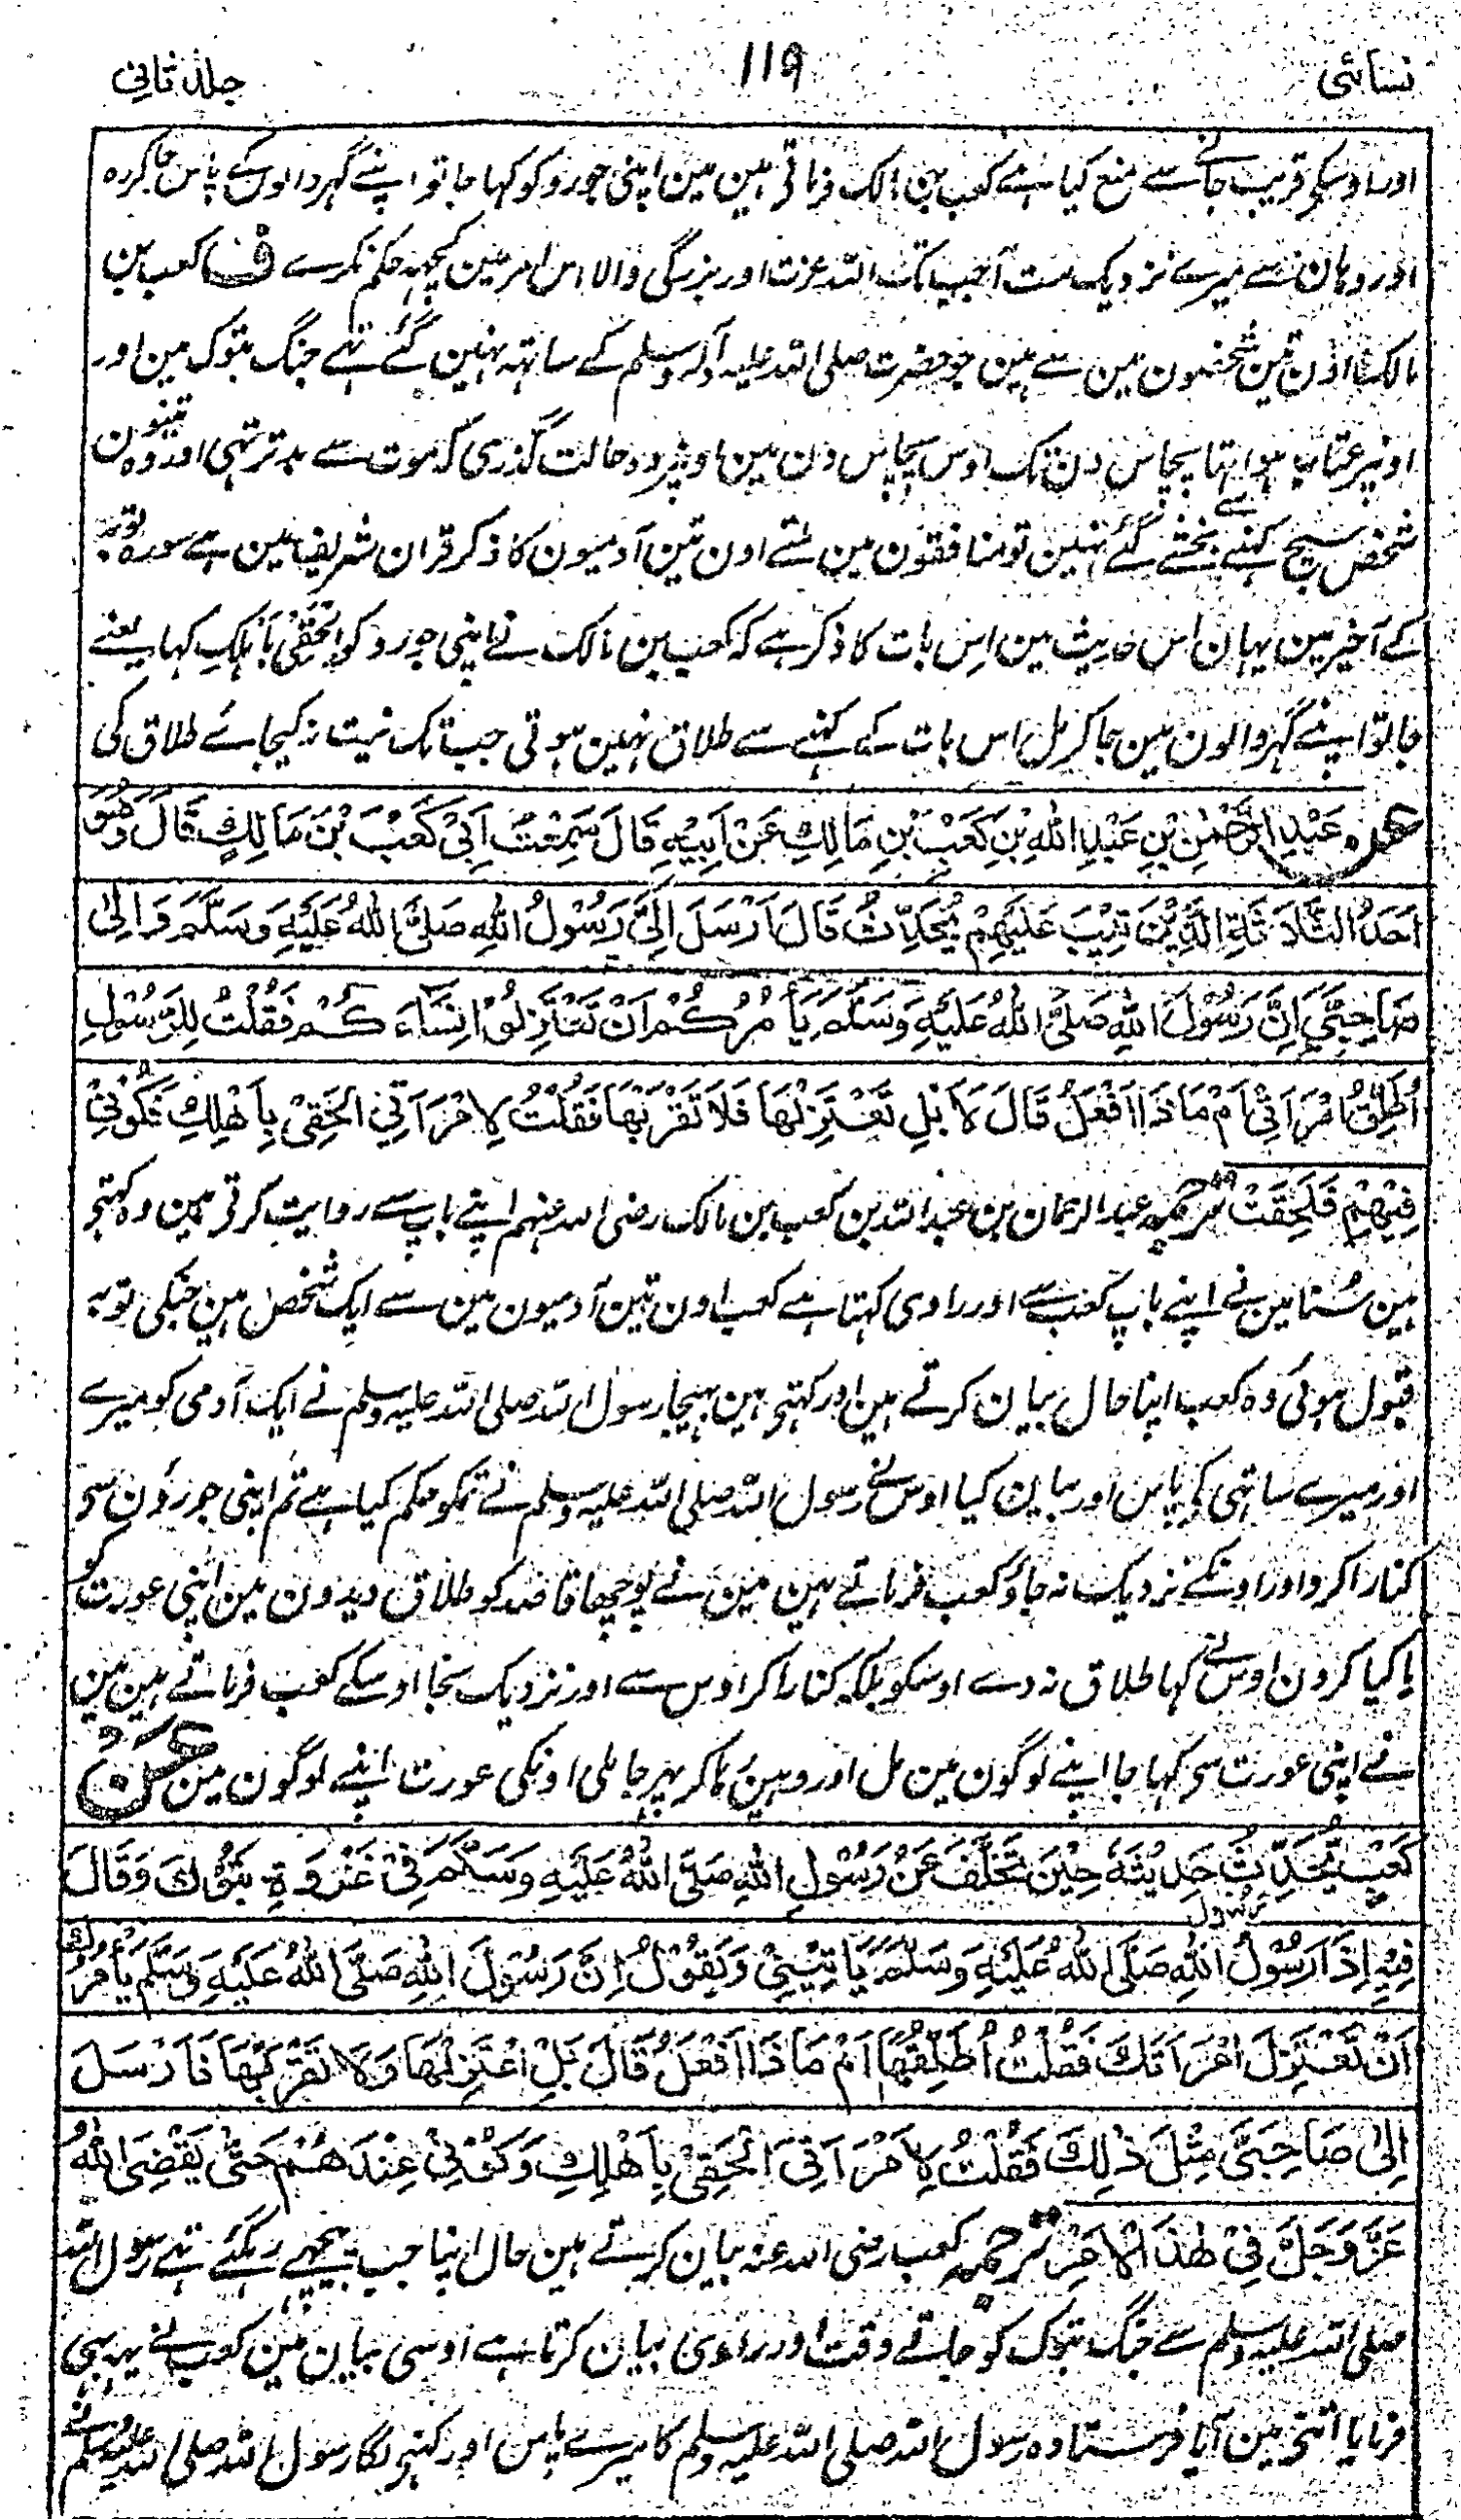 نسائی ۱۱۹ جلد ثانی
اور اوسکی قریب جانے سے منع کیا ہے کعب بن مالک فرماتی ہین مین اپنی جورو کو کہا جا تو اپنے گہر والون کے پاس جا کر رہ
اور وہان سے میرے نزدیک مت آ جب تک اللہ عزت اور بزرگی والا اس امر مین کچھہ حکم نکرے ف کعب بن
مالک اون تین شخصون مین سے ہین جو حضرت صلی اللہ علیہ وآلہ وسلم کے ساتھہ نہین گئے تہے جنگ تبوک مین اور
اونپر عتاب ہوا تہا پچاس دن تک اوس پچاس دن مین اونپر وہ حالت گذری کہ موت سے بدتر تہی اور وہ تینون
شخص سچ کہنے سے بخشے گئے نہین تو منافقون مین ملتے اون تین آدمیون کا ذکر قران شریف مین ہے سورہ توبہ
کے آخیر مین یہان اس حدیث مین اس بات کا ذکر ہے کہ کعب بن مالک نے اپنی جورو کو اِلحَقِیْ بِاَہلِکِ کہا یعنے
جا تو اپنے گہر والون مین جا کر مل اس بات کے کہنے سے طلاق نہین ہوتی جب تک نیت نہ کیجائے طلاق کی
عَبْدِ الرَّحْمٰنِ بْنِ عَبْدِ اللّٰهِ بْنِ كَعْبِ بْنِ مَالِكٍ عَنْ اَبِيْهِ قَالَ سَمِعْتُ اَبِيْ كَعْبَ بْنَ مَالِكٍ قَالَ وَهُوَ
اَحَدُ الثَّلَاثَةِ الَّذِيْنَ تِيْبَ عَلَيْهِمْ يُحَدِّثُ قَالَ اَرْسَلَ اِلَيَّ رَسُوْلُ اللّٰهِ صَلَّى اللّٰهُ عَلَيْهِ وَسَلَّمَ وَاِلٰى
صَاحِبَيَّ اِنَّ رَسُوْلَ اللّٰهِ صَلَّى اللّٰهُ عَلَيْهِ وَسَلَّمَ يَاْمُرُكُمْ اَنْ تَعْتَزِلُوْا نِسَاءَكُمْ فَقُلْتُ لِلرَّسُوْلِ
اُطَلِّقُ امْرَاَتِيْ اَمْ مَاذَا اَفْعَلُ قَالَ لَا بَلِ تَعْتَزِلُهَا فَلَا تَقْرَبْهَا فَقُلْتُ لِامْرَاَتِي الْحَقِيْ بِاَهْلِكِ فَكُوْنِيْ
فِيْهِمْ فَلَحِقَتْ ترجمہ عبدالرحمان بن عبداللہ بن کعب بن مالک رضی اللہ عنہم اپنے باپ سے روایت کرتی ہین وہ کہتے
ہین سُنا مین نے اپنے باپ کعب سے اور راوی کہتا ہے کعب اون تین آدمیون مین سے ایک شخص ہین جنکی توبہ
قبول ہوئی وہ کعب اپنا حال بیان کرتے ہین اور کہتے ہین بہیجا رسول اللہ صلی اللہ علیہ وسلم نے ایک آدمی کو میرے
اور میرے ساتہی کے پاس اور بیان کیا اوس نے رسول اللہ صلی اللہ علیہ وسلم نے تمکو حکم کیا ہے تم اپنی جورؤن سے
کنارا کرو اور اونکے نزدیک نہ جاؤ کعب فرماتے ہین مین نے پوچھا قاصد کو طلاق دیدون مین اپنی عورت کو
یا کیا کرون اوس نے کہا طلاق نہ دے اوسکو بلکہ کنارا کر اوس سے اور نزدیک نجا اوسکے کعب فرماتے ہین مین
نے اپنی عورت سے کہا جا اپنے لوگون مین مل اور وہین رہا کر پہر جا ملی اونکی عورت اپنے لوگون مین عن
كَعْبٍ يُّحَدِّثُ حَدِيْثَهٗ حِيْنَ تَخَلَّفَ عَنْ رَسُوْلِ اللّٰهِ صَلَّى اللّٰهُ عَلَيْهِ وَسَلَّمَ فِيْ غَزْوَةِ تَبُوْكَ وَقَالَ
فِيْهِ اِذَا رَسُوْلُ رَسُوْلِ اللّٰهِ صَلَّى اللّٰهُ عَلَيْهِ وَسَلَّمَ يَاْتِيْنِيْ وَيَقُوْلُ اِنَّ رَسُوْلَ اللّٰهِ صَلَّى اللّٰهُ عَلَيْهِ وَسَلَّمَ يَاْمُرُكَ
اَنْ تَعْتَزِلَ امْرَاَتَكَ فَقُلْتُ اُطَلِّقُهَا اَمْ مَاذَا اَفْعَلُ قَالَ بَلِ اعْتَزِلْهَا وَلَا تَقْرَبْهَا فَاَرْسَلَ
اِلٰى صَاحِبَيَّ مِثْلَ ذٰلِكَ فَقُلْتُ لِامْرَاَتِيَ الْحَقِيْ بِاَهْلِكِ وَكُوْنِيْ عِنْدَهُمْ حَتّٰى يَقْضِيَ اللّٰهُ
عَزَّوَجَلَّ فِيْ هٰذَا الْاَمْرِ ترجمہ کعب رضی اللہ عنہ بیان کرتے ہین حال اپنا جب پیچہے رہگئے تہے رسول اللہ
صلی اللہ علیہ وسلم سے جنگ تبوک کو جاتے وقت اور راوی بیان کرتا ہے اوسی بیان مین کعب نے یہ بہی
فرمایا اتنے مین آیا فرستادہ رسول اللہ صلی اللہ علیہ وسلم کا میرے پاس اور کہنے لگا رسول اللہ صلی اللہ علیہ وسلم نے